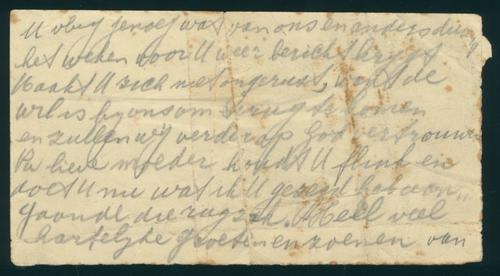 U vlug genoeg wat van ons en anders duurt
het weken voor U weer bericht krijgt
Maakt U zich niet ongerust, want de
wil is bij ons om terug te komen
en zullen wij verder op God vertrouwen
Pa lieve moeder houdt U flink en
doet U nu wat ik U gezegd heb aan-
gaande die zaak. Heel veel
hartelijke groeten en zoenen van